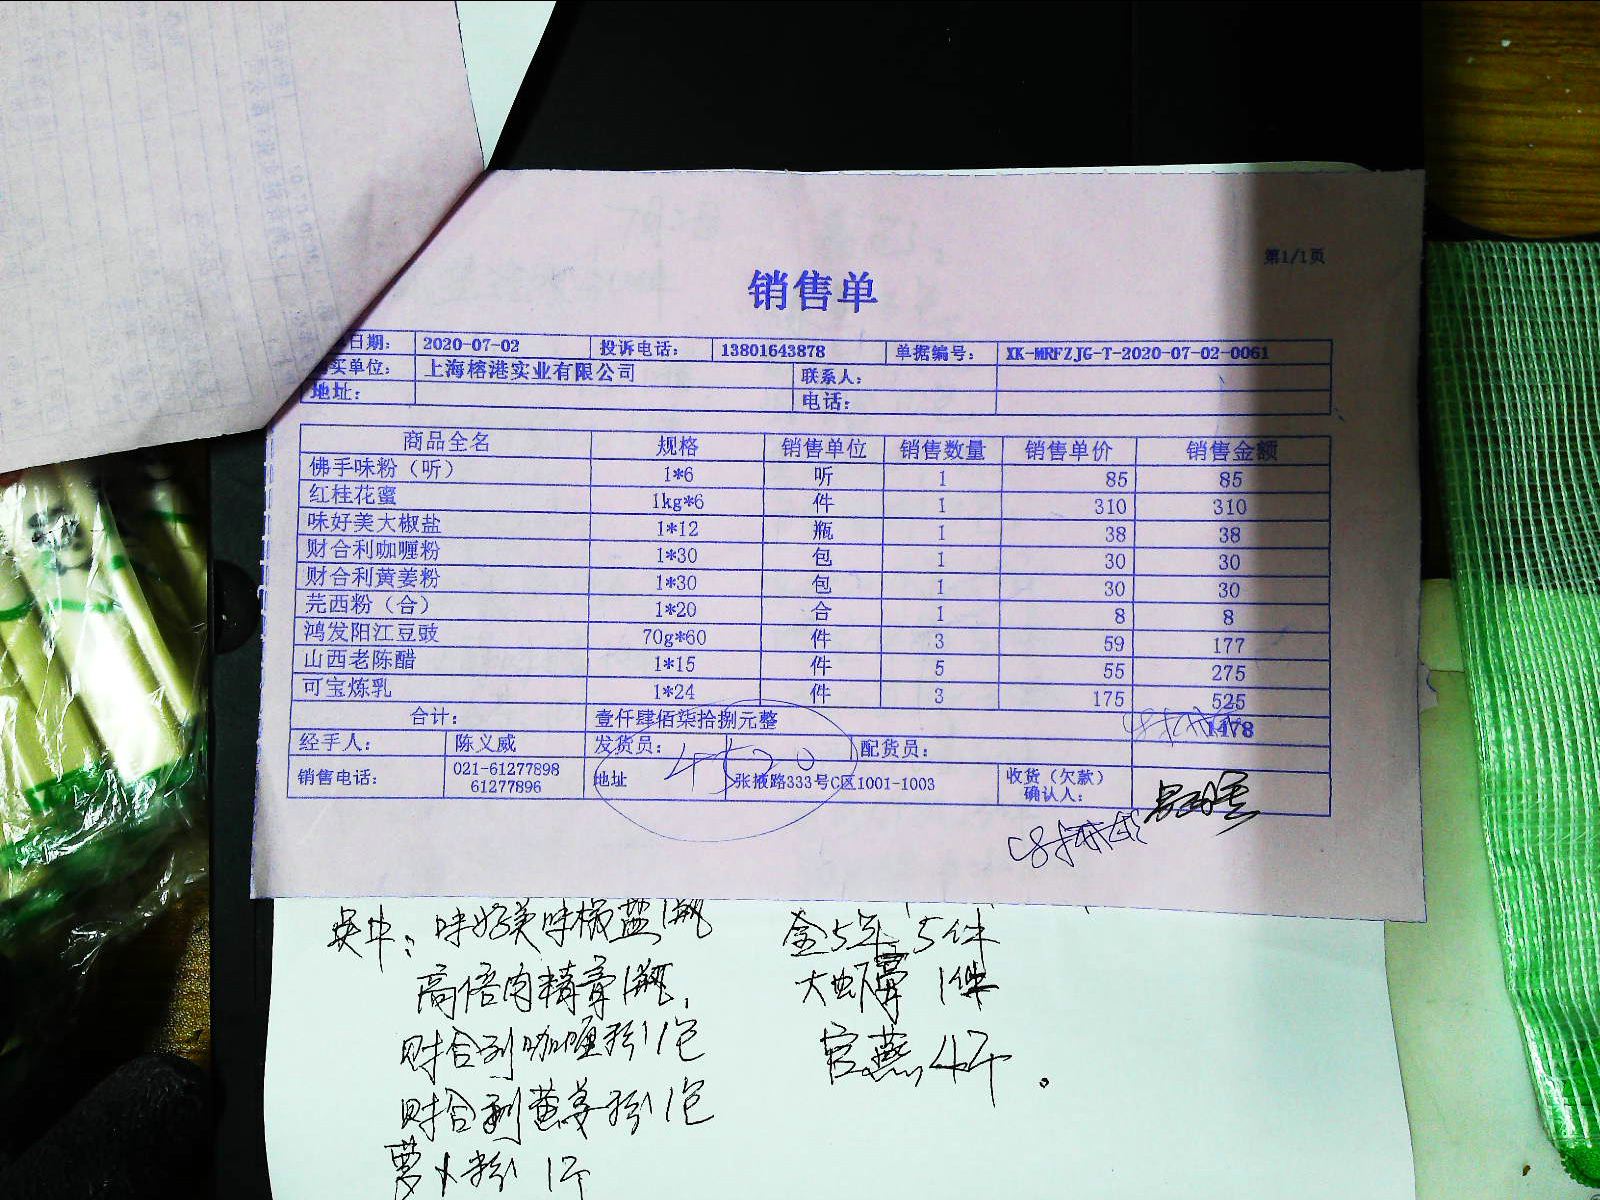 第1/1页
销售单
日期： 2020-07-02 投诉电话： 13801643878 单据编号： XK-MRFZJG-T-2020-07-02-0061
买单位： 上海榕港实业有限公司 联系人：
地址： 电话：
商品全名 规格 销售单位 销售数量 销售单价 销售金额
佛手味粉（听） 1*6 听 1 85 85
红桂花蜜 1kg*6 件 1 310 310
味好美大椒盐 1*12 瓶 1 38 38
财合利咖喱粉 1*30 包 1 30 30
财合利黄姜粉 1*30 包 1 30 30
芫西粉（合） 1*20 合 1 8 8
鸿发阳江豆豉 70g*60 件 3 59 177
山西老陈醋 1*15 件 5 55 275
可宝炼乳 1*24 件 3 175 525
合计： 壹仟肆佰柒拾捌元整 1478
经手人： 陈义威 发货员： 配货员：
4520
销售电话： 021-61277898 61277896 地址 张掖路333号C区1001-1003 收货（欠款）确认人：
味好美味椒盐1瓶 金5年 5件
高倍肉精膏1瓶， 大 1件
财合利咖喱粉1包 官燕 4斤。
财合利黄姜粉1包
萝卜粉 1斤